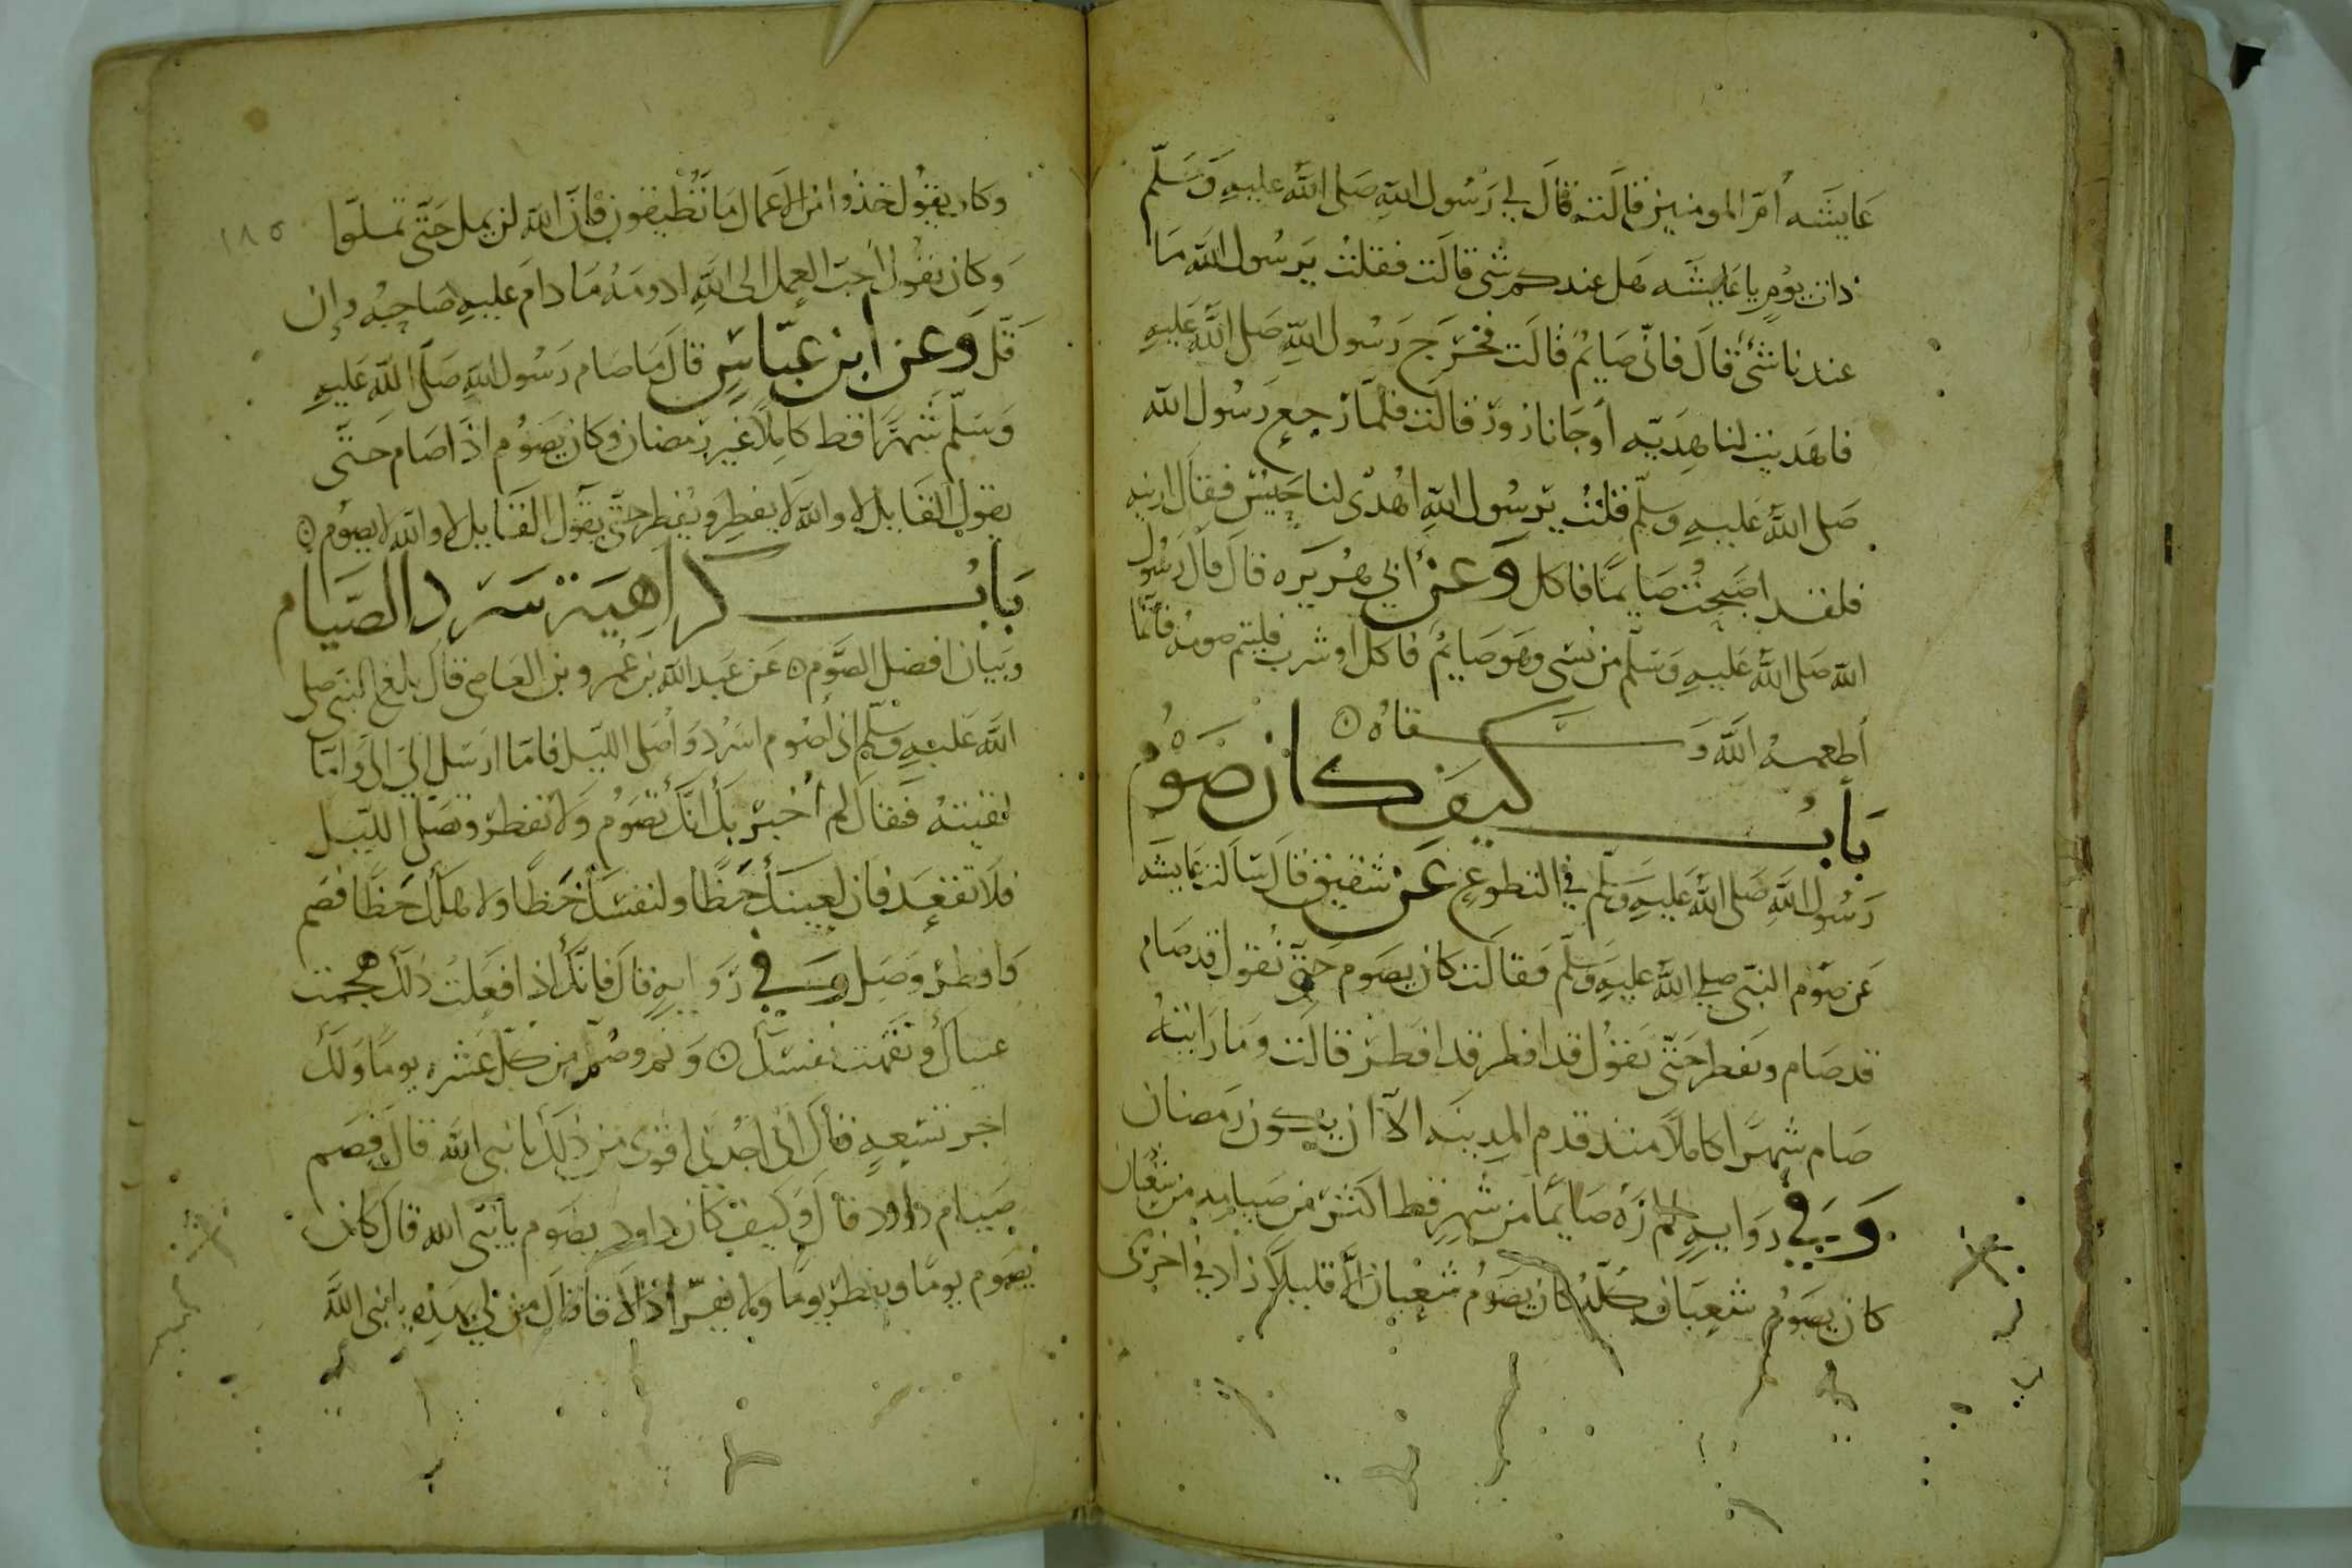 عايشه أمّ المومنين قالت قال لي رسول الله صلى الله عليه وسلّم
ذات يومٍ يا عايشه هل عندكم شي قالت فقلت يرسول الله ما
عندنا شئ قال فانّي صايم قالت فخرج رسول الله صلى الله عليه
فاهديت لنا هديّه أو جانا زور قالت فلمّا رجع رسول الله
صلى الله عليه وسلّم قلت يرسول الله اهدى لنا حيس فقال ارنيه
فلقد اصبحت صايمًا فاكل وعن ابي هريره قال قال رسول
الله صلى الله عليه وسلّم من نسى وهو صايم فاكل أو شرب فليتم صومه فانّما
أطعمه الله وسقاه
بابُ كيف كان صوم
رسول الله صلى الله عليه وسلّم في التطوع عن شقيق قال سالت عايشه
عن صوم النبى صلى الله عليه وسلّم فقالت كان يصوم حتّى نقول قد صام
قد صام ويفطر حتّى نقول قد افطر قد افطر قالت وما رايته
صام شهرًا كاملًا منذ قدم المدينه الّا ان يكون رمضان
وفي روايه لم ارَه صايمًا من شهرٍ قط اكثر من صيامه من شعبان
كان يصوم شعبان كلّه كان يصوم شعبان الّا قليلا زاد في اخرى
١٨٥
وكان يقول خذوا من الاعمال ما تطيقون فانّ الله لن يمل حتّى تملوّا
وكان يقول أحبّ العمل الى الله ادومه ما دام عليه صاحبه وإن
قلّ وعن ابن عبّاسٍ قال ما صام رسول الله صلّى الله عليه
وسلّم شهرًا قط كاملًا غير رمضان وكان يصوم اذا صام حتّى
يقول القايل لا والله لا يفطر ويفطر حتّى يقول القايل لا والله لا يصوم
بابُ كراهية سرد الصّيام
وبيان افضل الصّوم عن عبد الله بن عمرو بن العاصي قال بلغ النبى صلى
الله عليه وسلّم انى أصوم اسرد وأصلى الليل فامّا ارسل الىّ وامّا
لقيته فقال الم أُخبر بأنك تصوم ولا تفطر وتصلّى الليل
فلا تفعل فان لعينك حظًا ولنفسك حظًا ولاهلك حظًا فصم
وافطر وصل وفي روايه قال فانّك اذا فعلت ذلك هجمت
عيناك ونفهت نفسك ونم وصم من كل عشره يومًا ولك
اجر تسعهٍ قال انى اجدني اقوى من ذلك يا نبى الله قال فصم
صيام داود قال وكيف كان داود يصوم يا نبى الله قال كان
يصوم يومًا ويفطر يومًا ولا يفرّ اذا لاقا قال من لي بهذه يا نبى الله